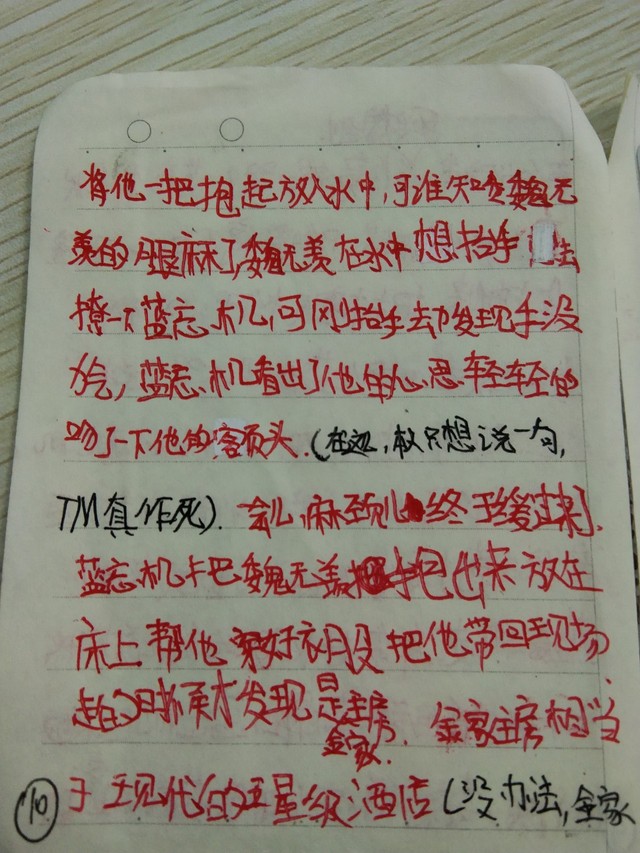 将他一把抱起放入水中,可谁知晓魏无
羡的腿麻了,魏无羡在水中想抬手去
撩一下蓝忘机,可刚抬手去发现手没
力气,蓝忘机看出了他的心思,轻轻的
吻了一下他的额头.(在这,我只想说一句,
TM真作死). 会儿,麻劲儿终于缓过来了,
蓝忘机把魏无羡抱出来放在
床上帮他穿好衣服把他带回现场
赶的时候才发现是金家主房. 金家主房相当
于现代的五星级酒店(没办法,金家
10